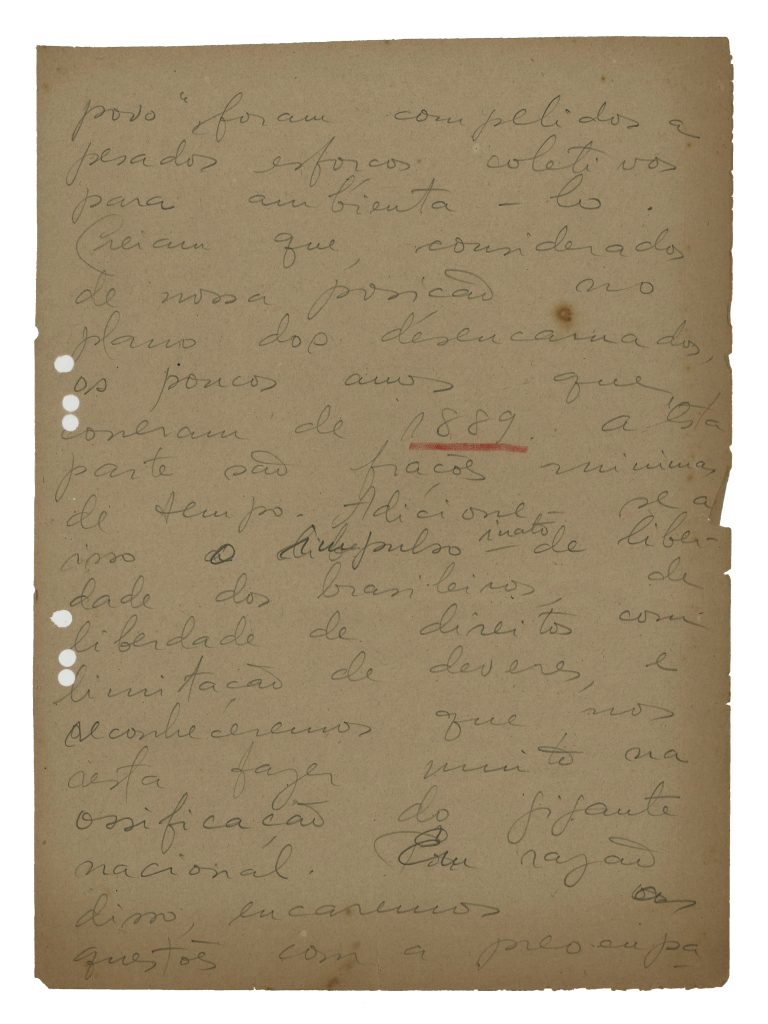 povo", foram compelidos a
pesados esforços coletivos
para ambienta-lo.
Creiam que, considerados
de nossa posicão no
plano dos desencarnados,
os poucos anos que
correram de 1889 a esta
parte são fracões minimas
de tempo. Adicione-se a
isso o impulso inato de liber-
dade dos brasileiros, de
liberdade de direitos com
limitacão de deveres, e
reconheceremos que nos
resta fazer muito na
ossificacão do gigante
nacional. Em razão
disso, encaremos as
questões com a preocupa